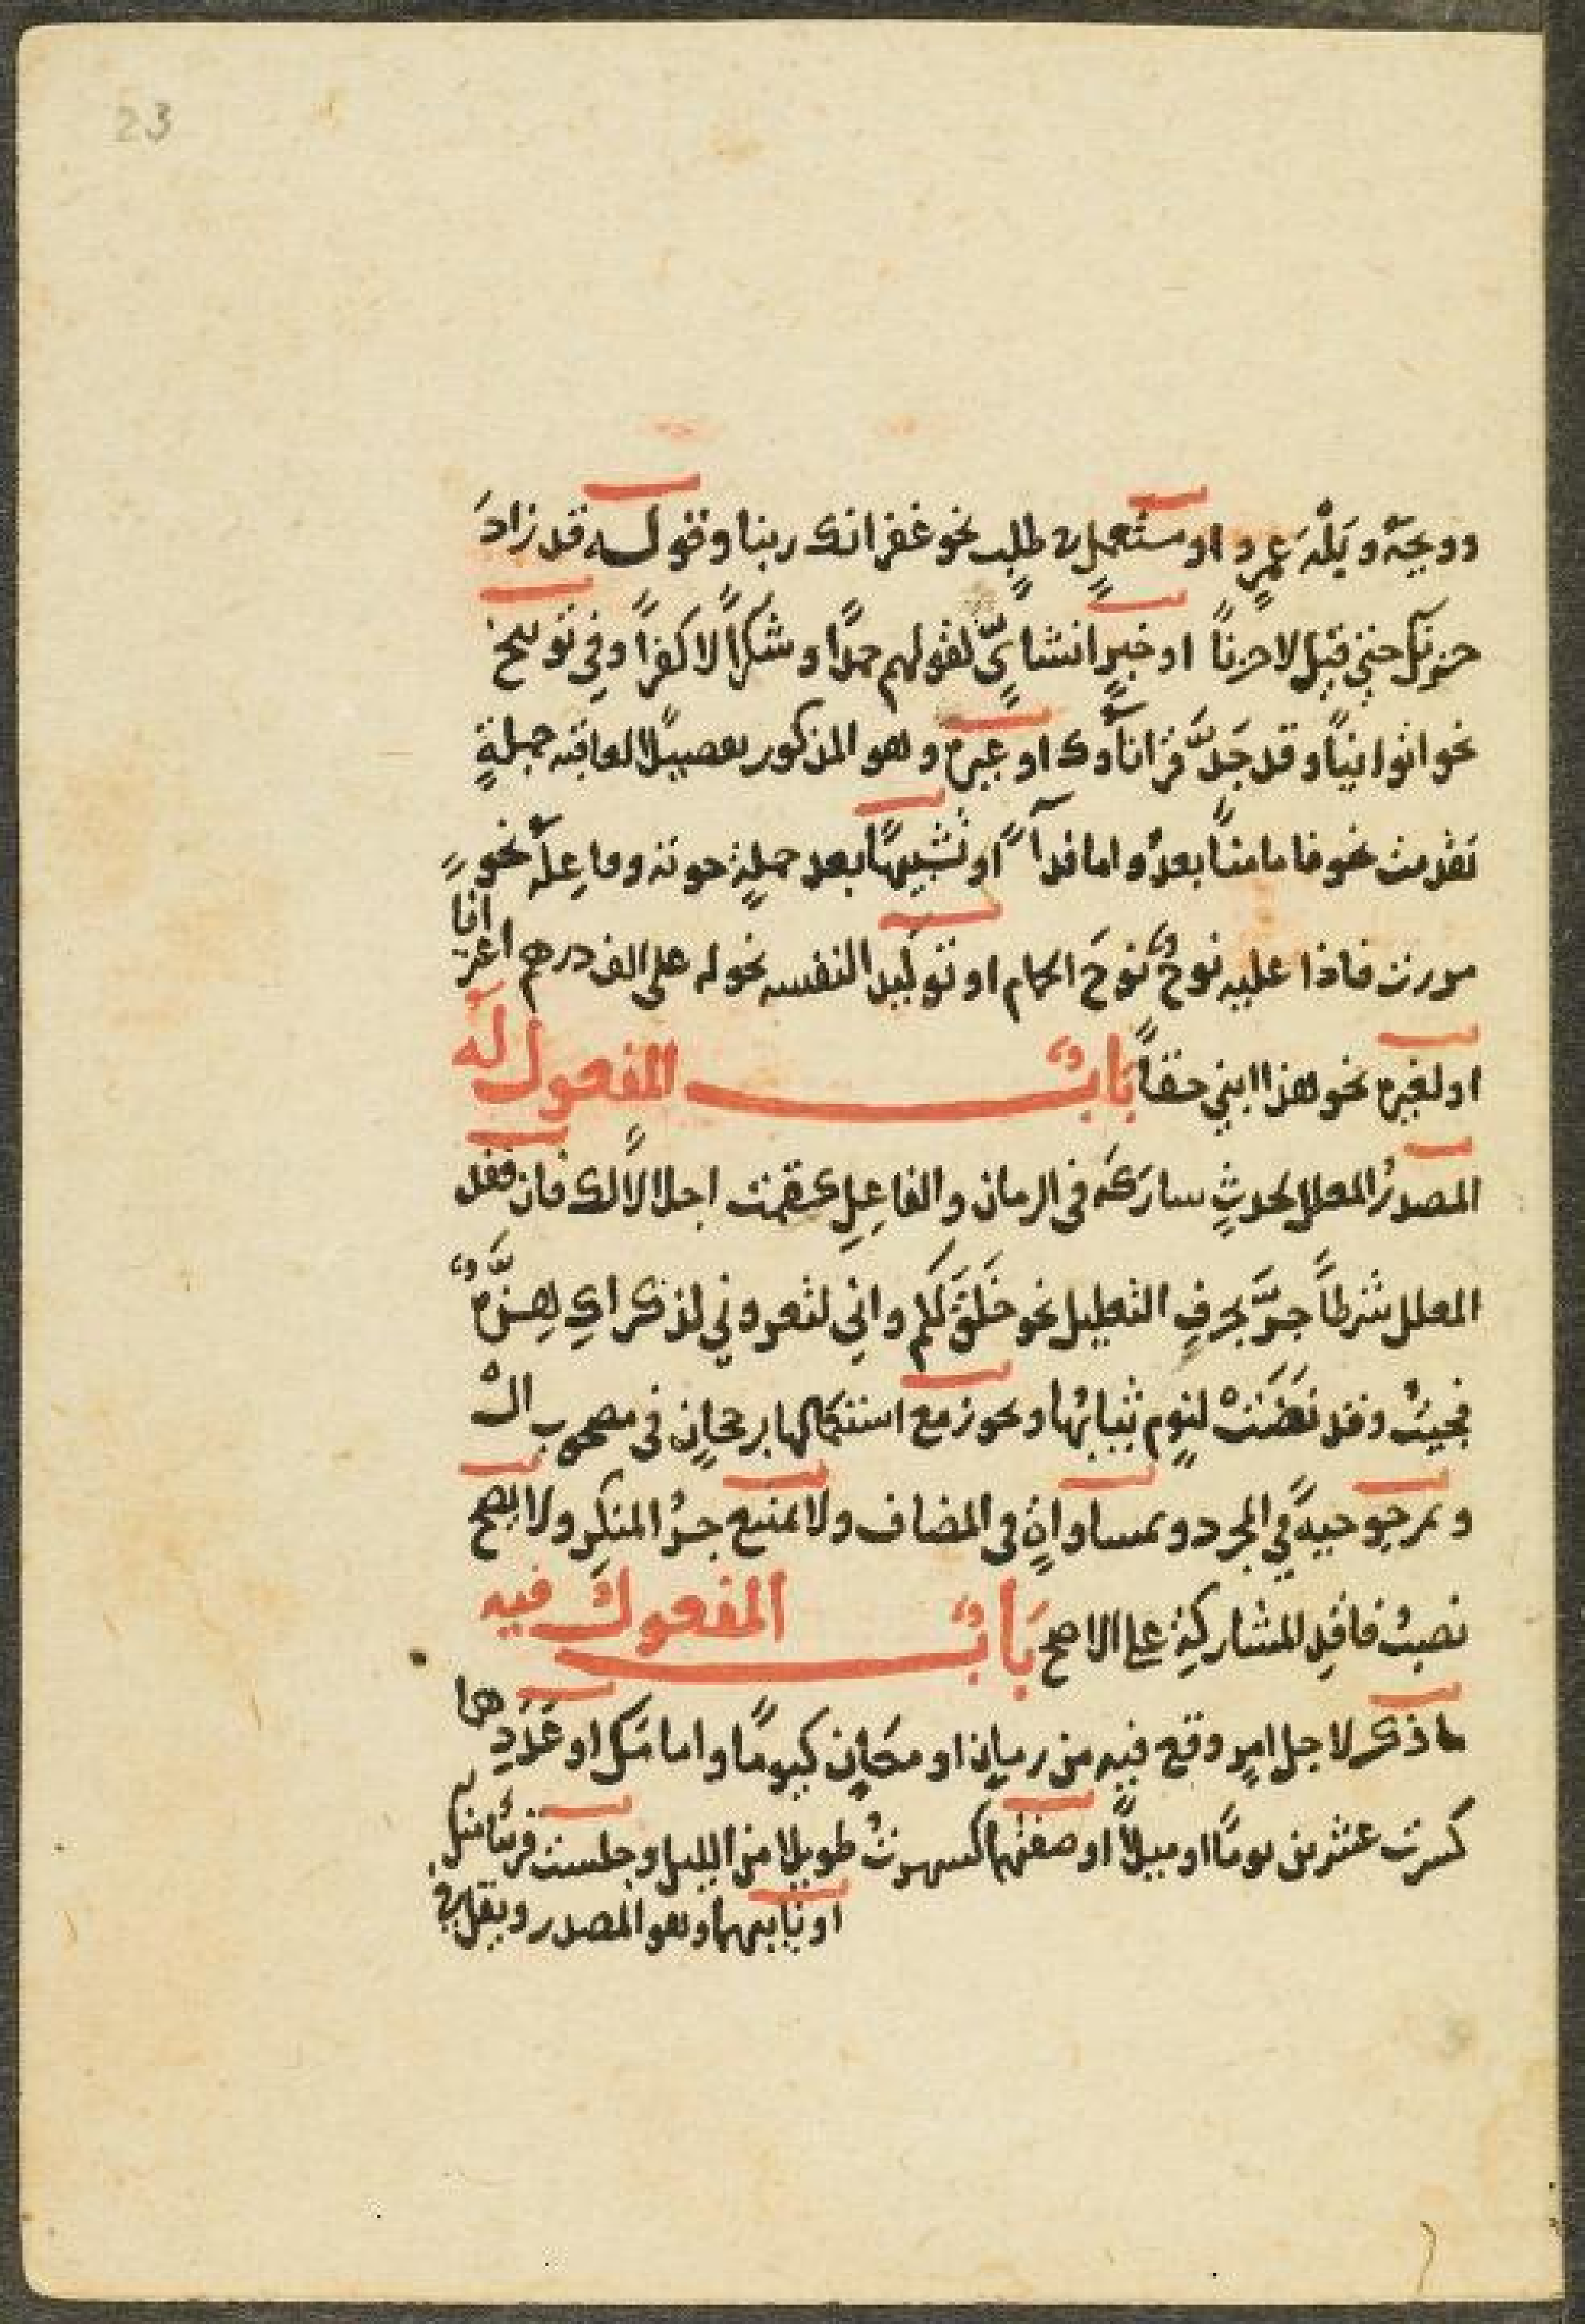 23
وويحه وبله عمرو او مستعمل في طلب نحو غفرانك ربنا وقوله قد زاد
حزنك حتى قيل لا حزنا او خبر انشائي كقولهم حمدا وشكرا لا كفرا وفي توبيخ
نحو اتوانيا وقد جد قرناؤك او غيره وهو المذكور تفصيلا لعاقبة جملة
تقدمت نحو فاما منا بعد واما فداء او تشبيها بعد جملة حوته وفاعله نحو
مررت فاذا عليه نوح نوح الحمام او توكيد النفسه نحو له على الف درهم اعترافا
او لغيره نحو هذا ابني حقا باب المفعول له
المصدر المعلل لحدث شاركه في الزمان والفاعل كقمت اجلالا لك فان فقد
المعلل شرطا جر بحرف التعليل نحو خلق لكم واني لتعروني لذكراك هزة
فجيت وقد نضت لنوم ثيابها ويجوز مع استكمالها برجحان في مصحوب ال
وبمرجوحية في المجرد وبمساواة في المضاف ولا يمتنع جر المنكر ولا يصح
نصب فاقد المشاركة على الاصح باب المفعول فيه
ما ذكر لاجل امر وقع فيه من زمان او مكان كيوما وامامك او عددها
كسرت عشرين يوما او ميلا او صفتهما كسهرت طويلا من الليل وجلست قريبا منك
او نايبهما وهو المصدر ويقل في